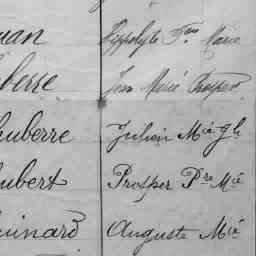 uan Hyppolyte Fçois Marie
berre Jean Marie Prosper
huberre Julien Mie
hubert Prosper Pre Mie
uinard Auguste Mie